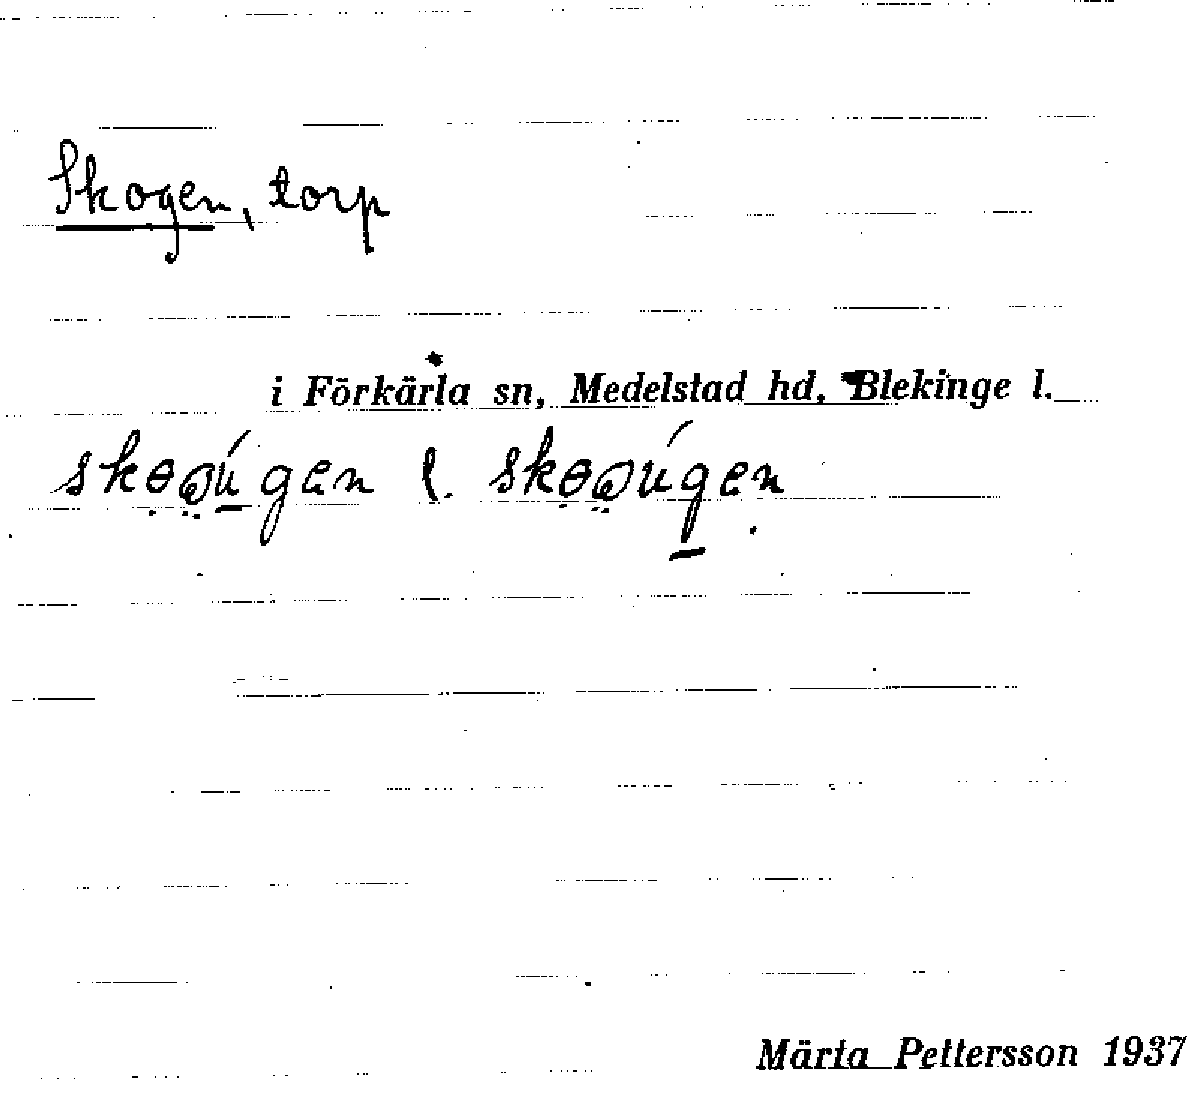 Skogen, torp
i Förkärla sn, Medelstad hd, Blekinge l.
l.
Märta Pettersson 1937